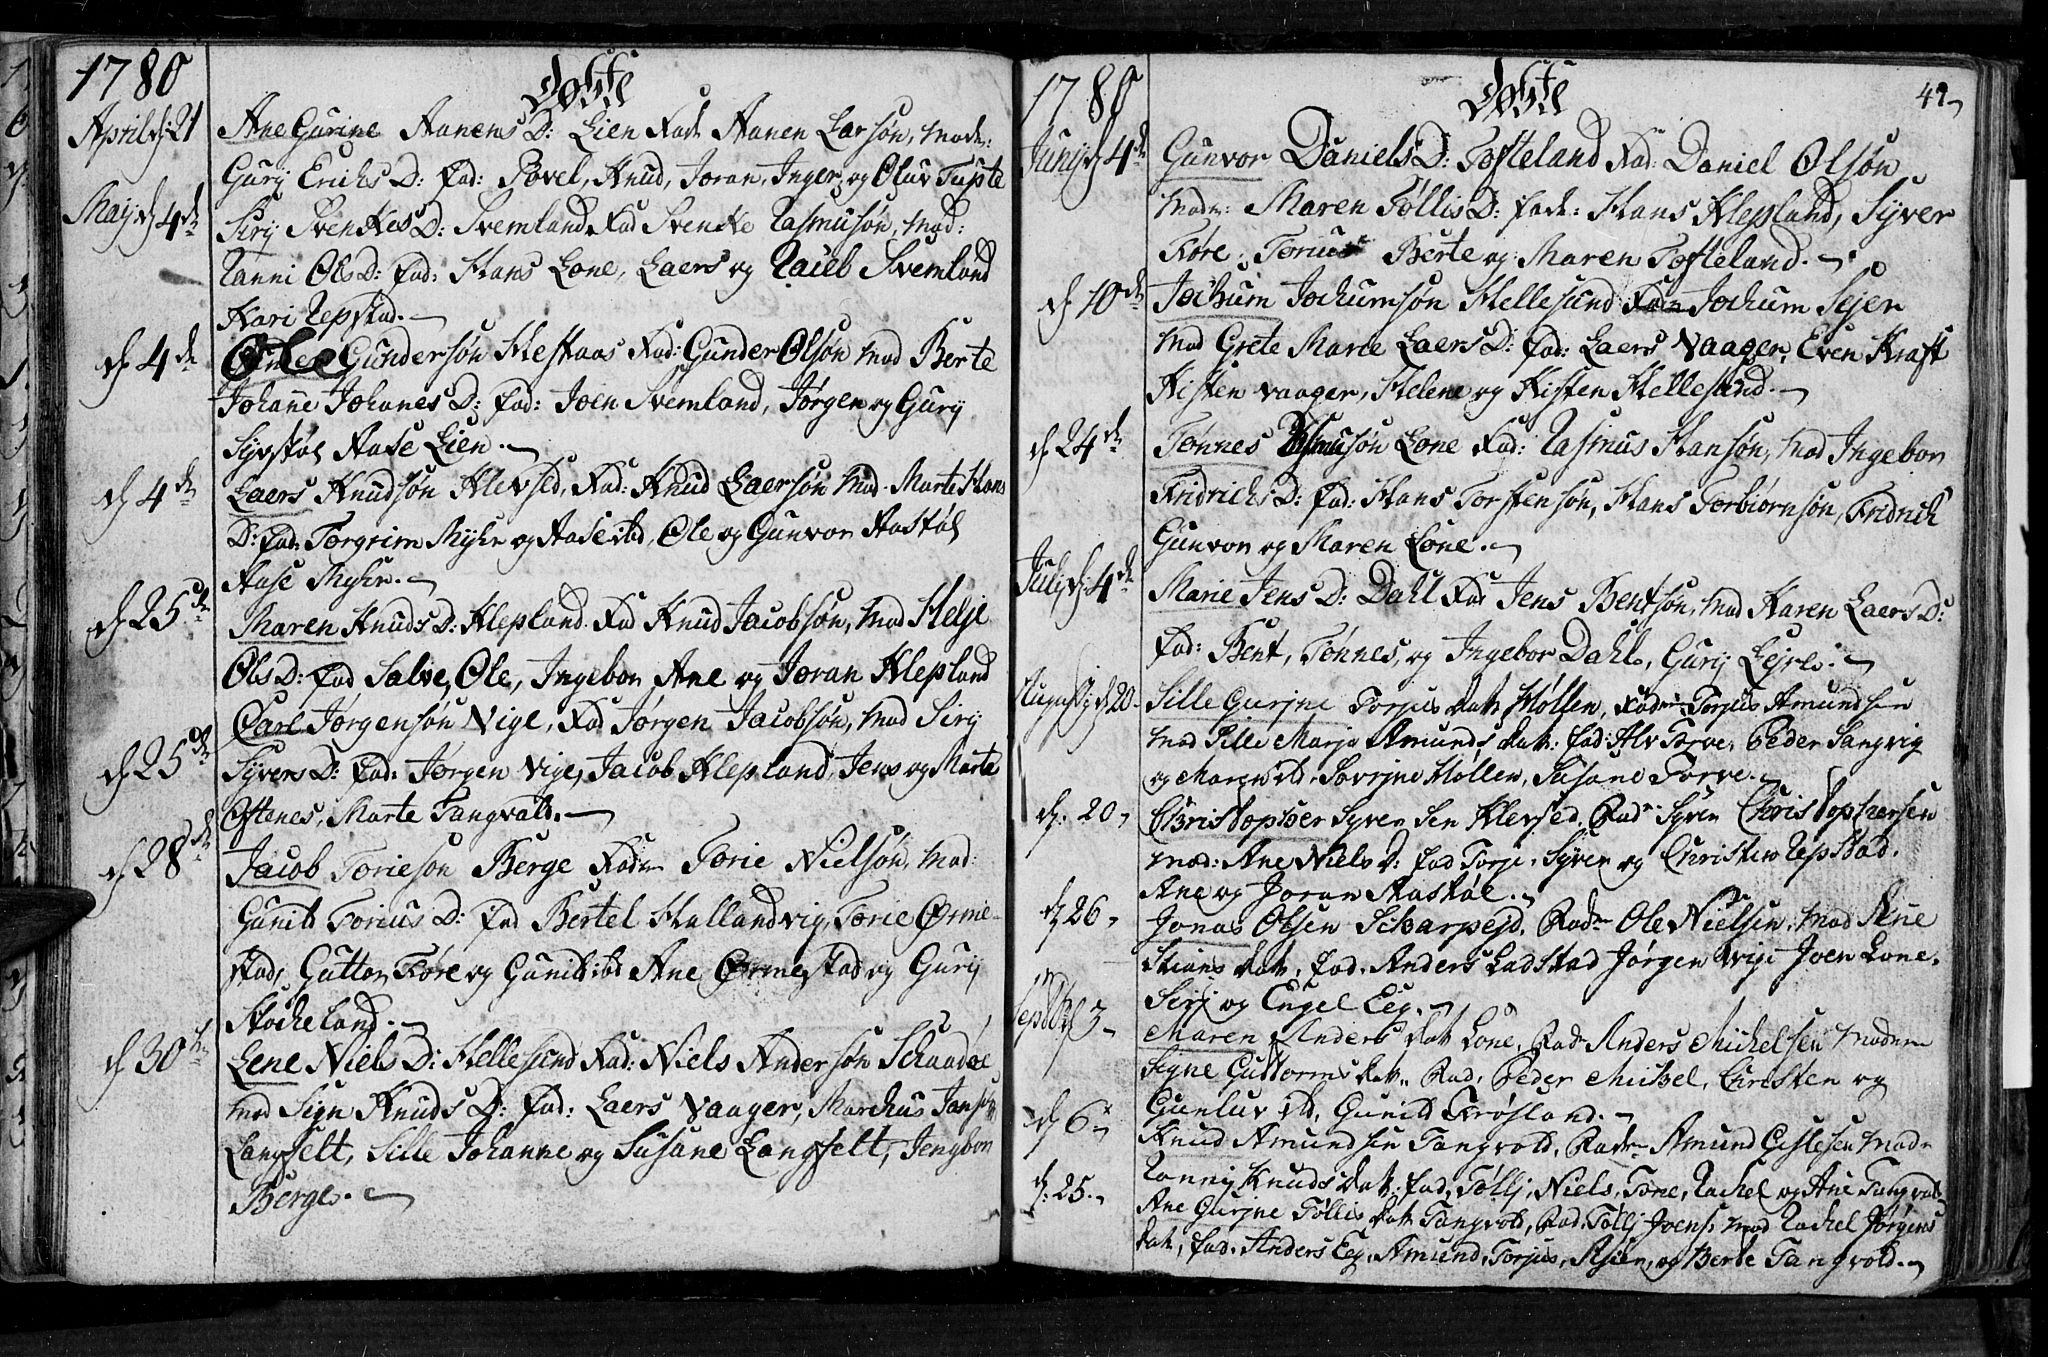 1780
Døbte
April d. 21 Ane Gurine Aanens D: Lien Fad: Aanen Larsøn, Mode:
Gurij Erichs D: Fad: Povel, Knud, Joran, Inger, og Oluv Tupte
Maij d. 4de Sirij Svenkes D: Svemland Fad Svenke Rasmusøn, mod:
Ranni Ols D: Fad: Hans Lone, Laers og Raieb Svemland
Kari Repstad.
d. 4de Gundersøn Hestaas Fad: Gunder Olsøn mod Berte
Johañe Johanes D: Fad: Joen Svemland, Jørgen og Gurij
Syvstøl Aase Lien.
d. 4de Laers Knudsøn Klevsed, Fad: Knud Laersøn Mod. Marte Hans
D: Fad: Torgrim Myhr og Aase ibd, Ole og Gunvor Aastøl
Aase Myhr.
d. 25de Maren Knuds D: Klepland. Fad Knud Jacobsøn, Mod Helje
Ols D: Fad Salve, Ole, Ingebor Ane og Joran Klepland
d. 25de Carl Jørgensøn Vige, Fad Jørgen Jacobsøn, mod Sirij
Syvers D: Fad: Jørgen Vige, Jacob Klepland, Jens og Marte
Oftenes, Marte Tangvald.
d. 28de Jacob Torieson Berge Fader Torie Nielsøn, mod:
Gunild Torius D: Fad Bertel Hallandvig, Torie Ørme-
stad, Guttor Føre og Gunild ibd Ane Ørmestad og Gurij
Stocheland.
d. 30te Lene Niels D: Hellesund Fad: Niels Andersøn Schaadøe
mod Sign Knuds D: Fad: Laers Vaager, Marchus Jansøn
Langfelt, Sille Johanne og Susane Langfelt, Jengbor
Berge.
1780
Døbte
49
Junij d. 4de Gunvor Daniels D: Tofteland Fad: Daniel Olsøn
Moder: Maren Føllis D: Fade: Hans Klepland, Syver
Føre, Torius Berte og Maren Tofteland.
d. 10de Jochum Jochumsøn Hellesund Fader Jochum Sejer
Mod Grete Marie Laers D: Fad: Laers Vaager, Even Kraft
Kisten Vaager, Helene og Kisten Hellesund.
d. 24de Tønnes Rasmusøn Lone Fad: Rasmus Hansøn, Mod Ingebor
Fridrichs D: Fad: Hans Torstensøn, Hans Torbiørnsøn, Fridrich
Gunvor og Maren Lone.
Julij d. 4de Marie Jens D: Dahl Fad Jens Bentsøn, Mod Karen Laers D:
Fad: Bent, Tønnes, og Ingebor Dahl, Gurij Lejre.
Augustij d. 20 Sille Gurjne Torjus Datr Høllen, Fader Torjus Amundsen
Mod Sille Marja Amunds Datr: Fad: Alv Torve, Peder Sangvig
og Maren ibd, Sovrine Høllen, Susane Torve.
d. 20 Christopher Syversen Klevsed, Fadr Syver Christophersen
Mod: Ane Niels D: Fad Torje, Syver og Christen Repstad.
Ane og Joran Aastøl.
d. 26 Jonas Olsen Scharpejd. Fadr Ole Nielsen. Mod Añe
Stians Datr, Fad. Anders Ladstad Jørgen Vige Joen Lone.
Sirj og Engel Eeg.
Septbr d. 3 Maren Anders Datr Lone, Fadr Anders Michelsen Moder
Segne Guttorms Datr. Fad, Peder Michel, Christen og
Gunluv ibd, Gunild Frøsland.
d. 6 Knud Amundsen Tangvold, Fader Amund Gislesen Moder
Ranny Knuds Datr. Fad, Føllj, Niels, Tore, Rachel og Ane Tangvald
d. 25 Ane Gurjne Føllis Datr Tangvold, Fad. Føllj Joens. Mod Rachel Jørgens
Datr, Fad. Anders Eeg, Amund, Torjus, og Berte Tangvold.